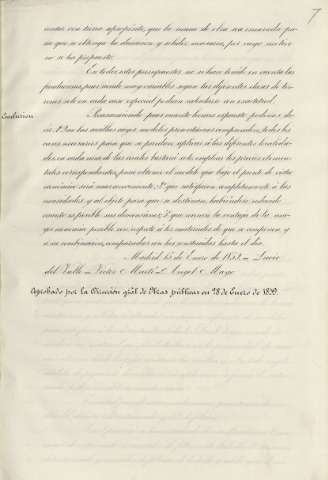 7
mente con tierra apropósito, que la mano de obra sea esmerada pa-
ra que se obtenga la duracion y solidez necesaria, por cuyo motivo
no se ha propuesto.
En todos estos presupuestos no se han tenido en cuenta las
fundaciones, pues siendo muy variables segun las diferentes clases de ter-
renos solo en cada caso especial pueden calcularse con exactitud.
Conclusion
Resumiendo pues cuanto hemos espuesto podemos de-
cir 1º Que los modelos cuyos
casos necesarios para que se puedan aplicar á las diferentes localida-
des, en cada una de las cuales bastará solo emplear los precios elemen-
tales correspondientes, para obtener el modelo que bajo el punto de vista
económico será mas conveniente. 2º que satisfacen completamente á las
necesidades y al objeto para que se destinan, habiéndose reducido
cuanto es posible sus dimensiones; 3º que reunen la ventaja de la ma-
yor economia posible con respecto á los materiales de que se componen, y
á sus combinaciones, comparados con los construidos hasta el dia.
Madrid 15 de Enero de 1859. = Lucio
del Valle = Victor Martí = Angel Mayo
Aprobado por la Direccion gral de Obras públicas en 28 de Enero de 1859.